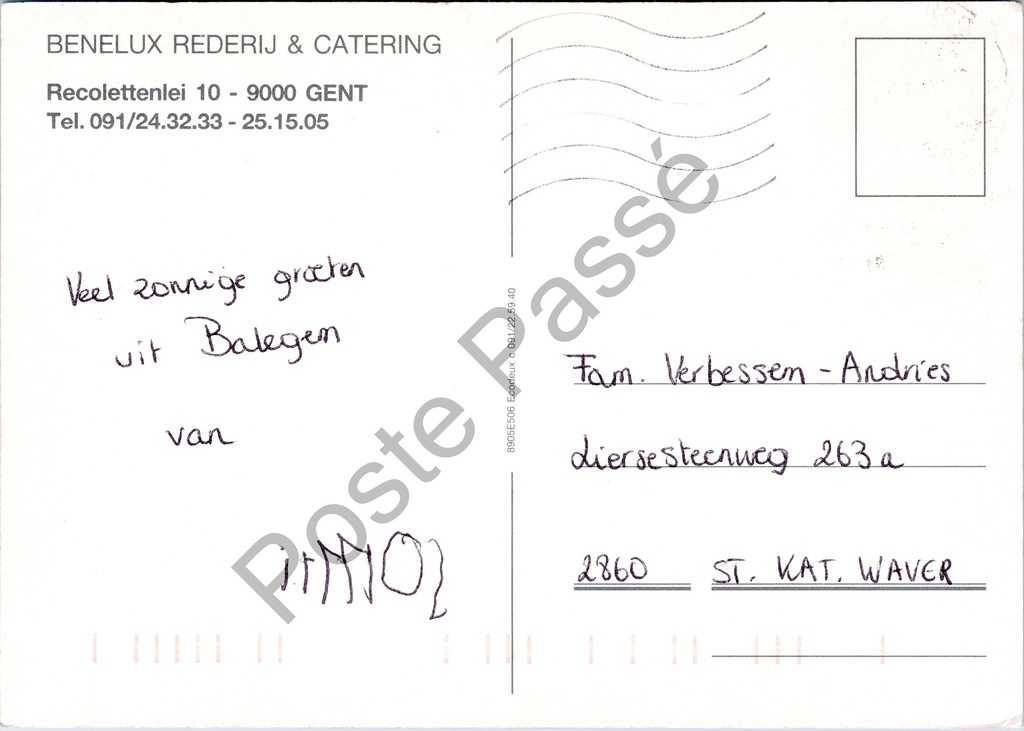 BENELUX REDERIJ & CATERING
Recolettenlei 10 - 9000 GENT
Tel. 091/24.32.33 - 25.15.05
Veel zonnige groeten
uit Balegem
van
8905E506 Ecodeux © 091/22.59.40
Fam. Verbessem - Andries
Liersesteenweg 263a
2860 ST. KAT. WAVER
Poste Passé